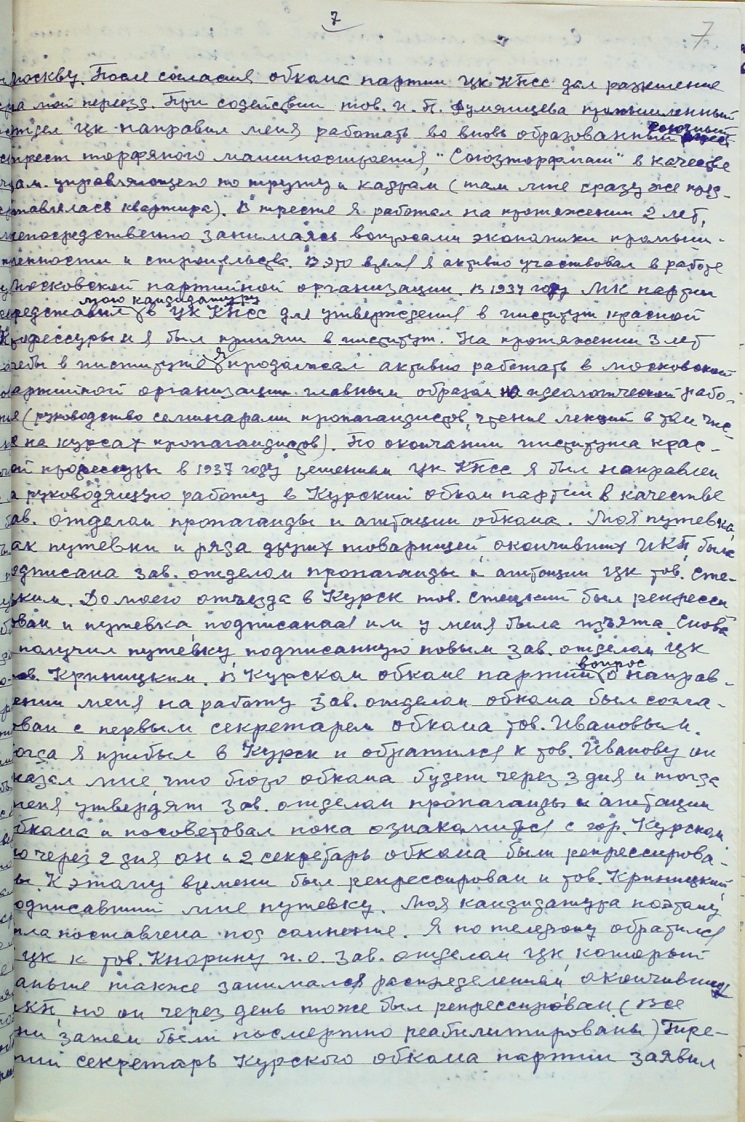 7
7
Москву. После согласия обкома партии ЦК КПСС дал разрешение
на мой переезд. При содействии тов. И. П. Румянцева промышленный
отдел ЦК направил меня работать во вновь образованный союзный
трест торфяного машиностроения "Союзторфмаш" в качестве
зам. управляющего по труду и кадрам (там мне сразу же пред-
ставлялась квартира). В тресте я работал на протяжении 2 лет,
непосредственно занимаясь вопросами экономики промыш-
ленности и строительства. В это время я активно участвовал в работе
Московской партийной организации. В 1934 году МК партии
мою кандидатуру
представил в ЦК КПСС для утверждения в институт красной
профессуры и я был принят в институт. На протяжении 3 лет
учебы в институте я продолжал активно работать в московской
партийной организации главным образом на идеологической рабо-
те (руководство семинарами пропагандистов, чтение лекций в том чис-
ле на курсах пропагандистов). По окончании института крас-
ной профессуры в 1937 году решением ЦК КПСС я был направлен
на руководящую работу в Курский обком партии в качестве
зав. отделом пропаганды и агитации обкома. Моя путевка,
как путевки и ряда других товарищей, окончивших ИКП была
подписана зав. отделом пропаганды и агитации ЦК тов. Сте-
цким. До моего отъезда в Курск тов. Стецкий был репресси-
рован и путевка подписанная им у меня была изъята. Снова
я получил путевку подписанную новым зав. отделом ЦК
тов. Криницким. В Курском обкоме партии вопрос о направ-
лении меня на работу зав. отделом обкома был согла-
сован с первым секретарем обкома тов. Ивановым.
Когда я прибыл в Курск и обратился к тов. Иванову он
сказал мне что бюро обкома будет через 3 дня и тогда
меня утвердят зав. отделом пропаганды и агитации
обкома и посоветовал пока ознакомиться с гор. Курском
но через 2 дня он и 2 секретарь обкома были репрессирова-
ны. К этому времени был репрессирован и тов. Криницкий,
подписавший мне путевку. Моя кандидатура поэтому
была поставлена под сомнение. Я по телефону обратился
в ЦК к тов. Кнорину и.о. зав. отделом ЦК, который
раньше также занимался распределением окончивших
ИКП, но он через день тоже был репрессирован (все
они затем были посмертно реабилитированы) Тре-
тий секретарь Курского обкома партии заявил